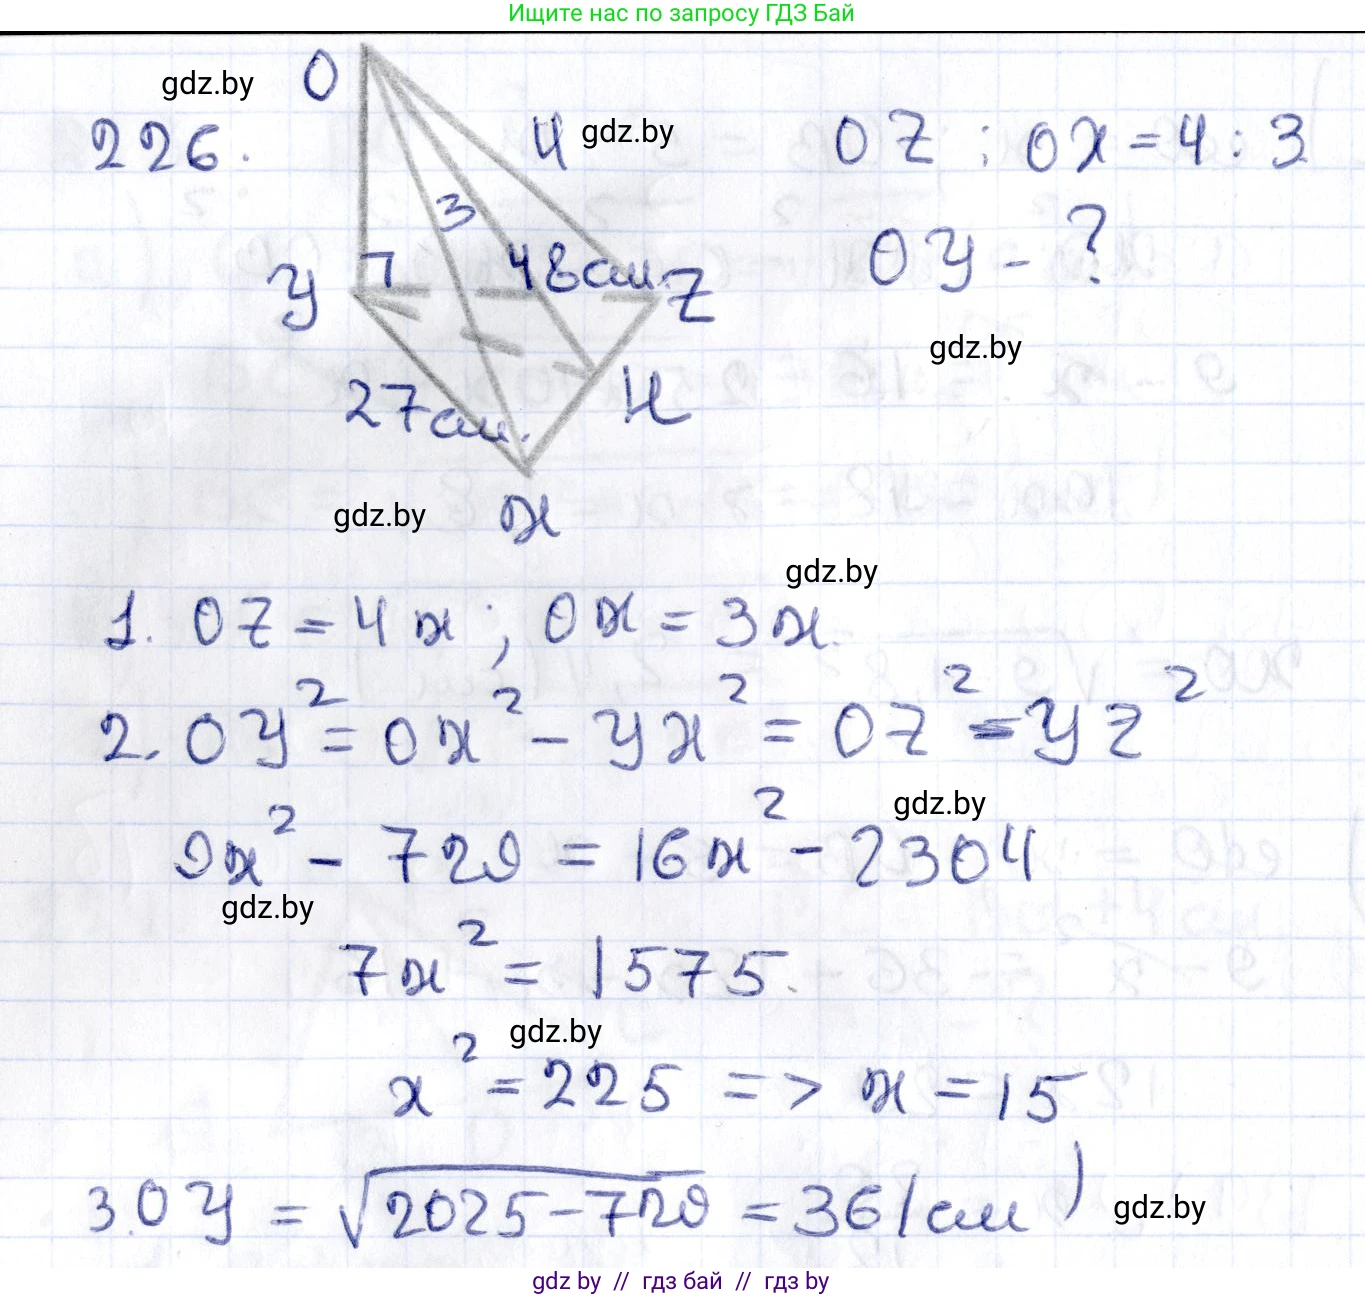 Ищите нас по запросу ГДЗ Бай
gdz.by
O
226.
4
gdz.by
OZ : OX = 4 : 3
3
OY - ?
48см.
Z
Y
gdz.by
27см.
H
gdz.by
x
gdz.by
1. OZ = 4x ; Ox = 3x.
2. OY² = Ox² - Yx² = OZ² - YZ²
gdz.by
9x² - 729 = 16x² - 2304
gdz.by
7x² = 1575.
gdz.by
x² = 225 => x = 15
3.OY = √2025-729 = 36(см)
gdz.by
gdz by // гдз бай // гдз by